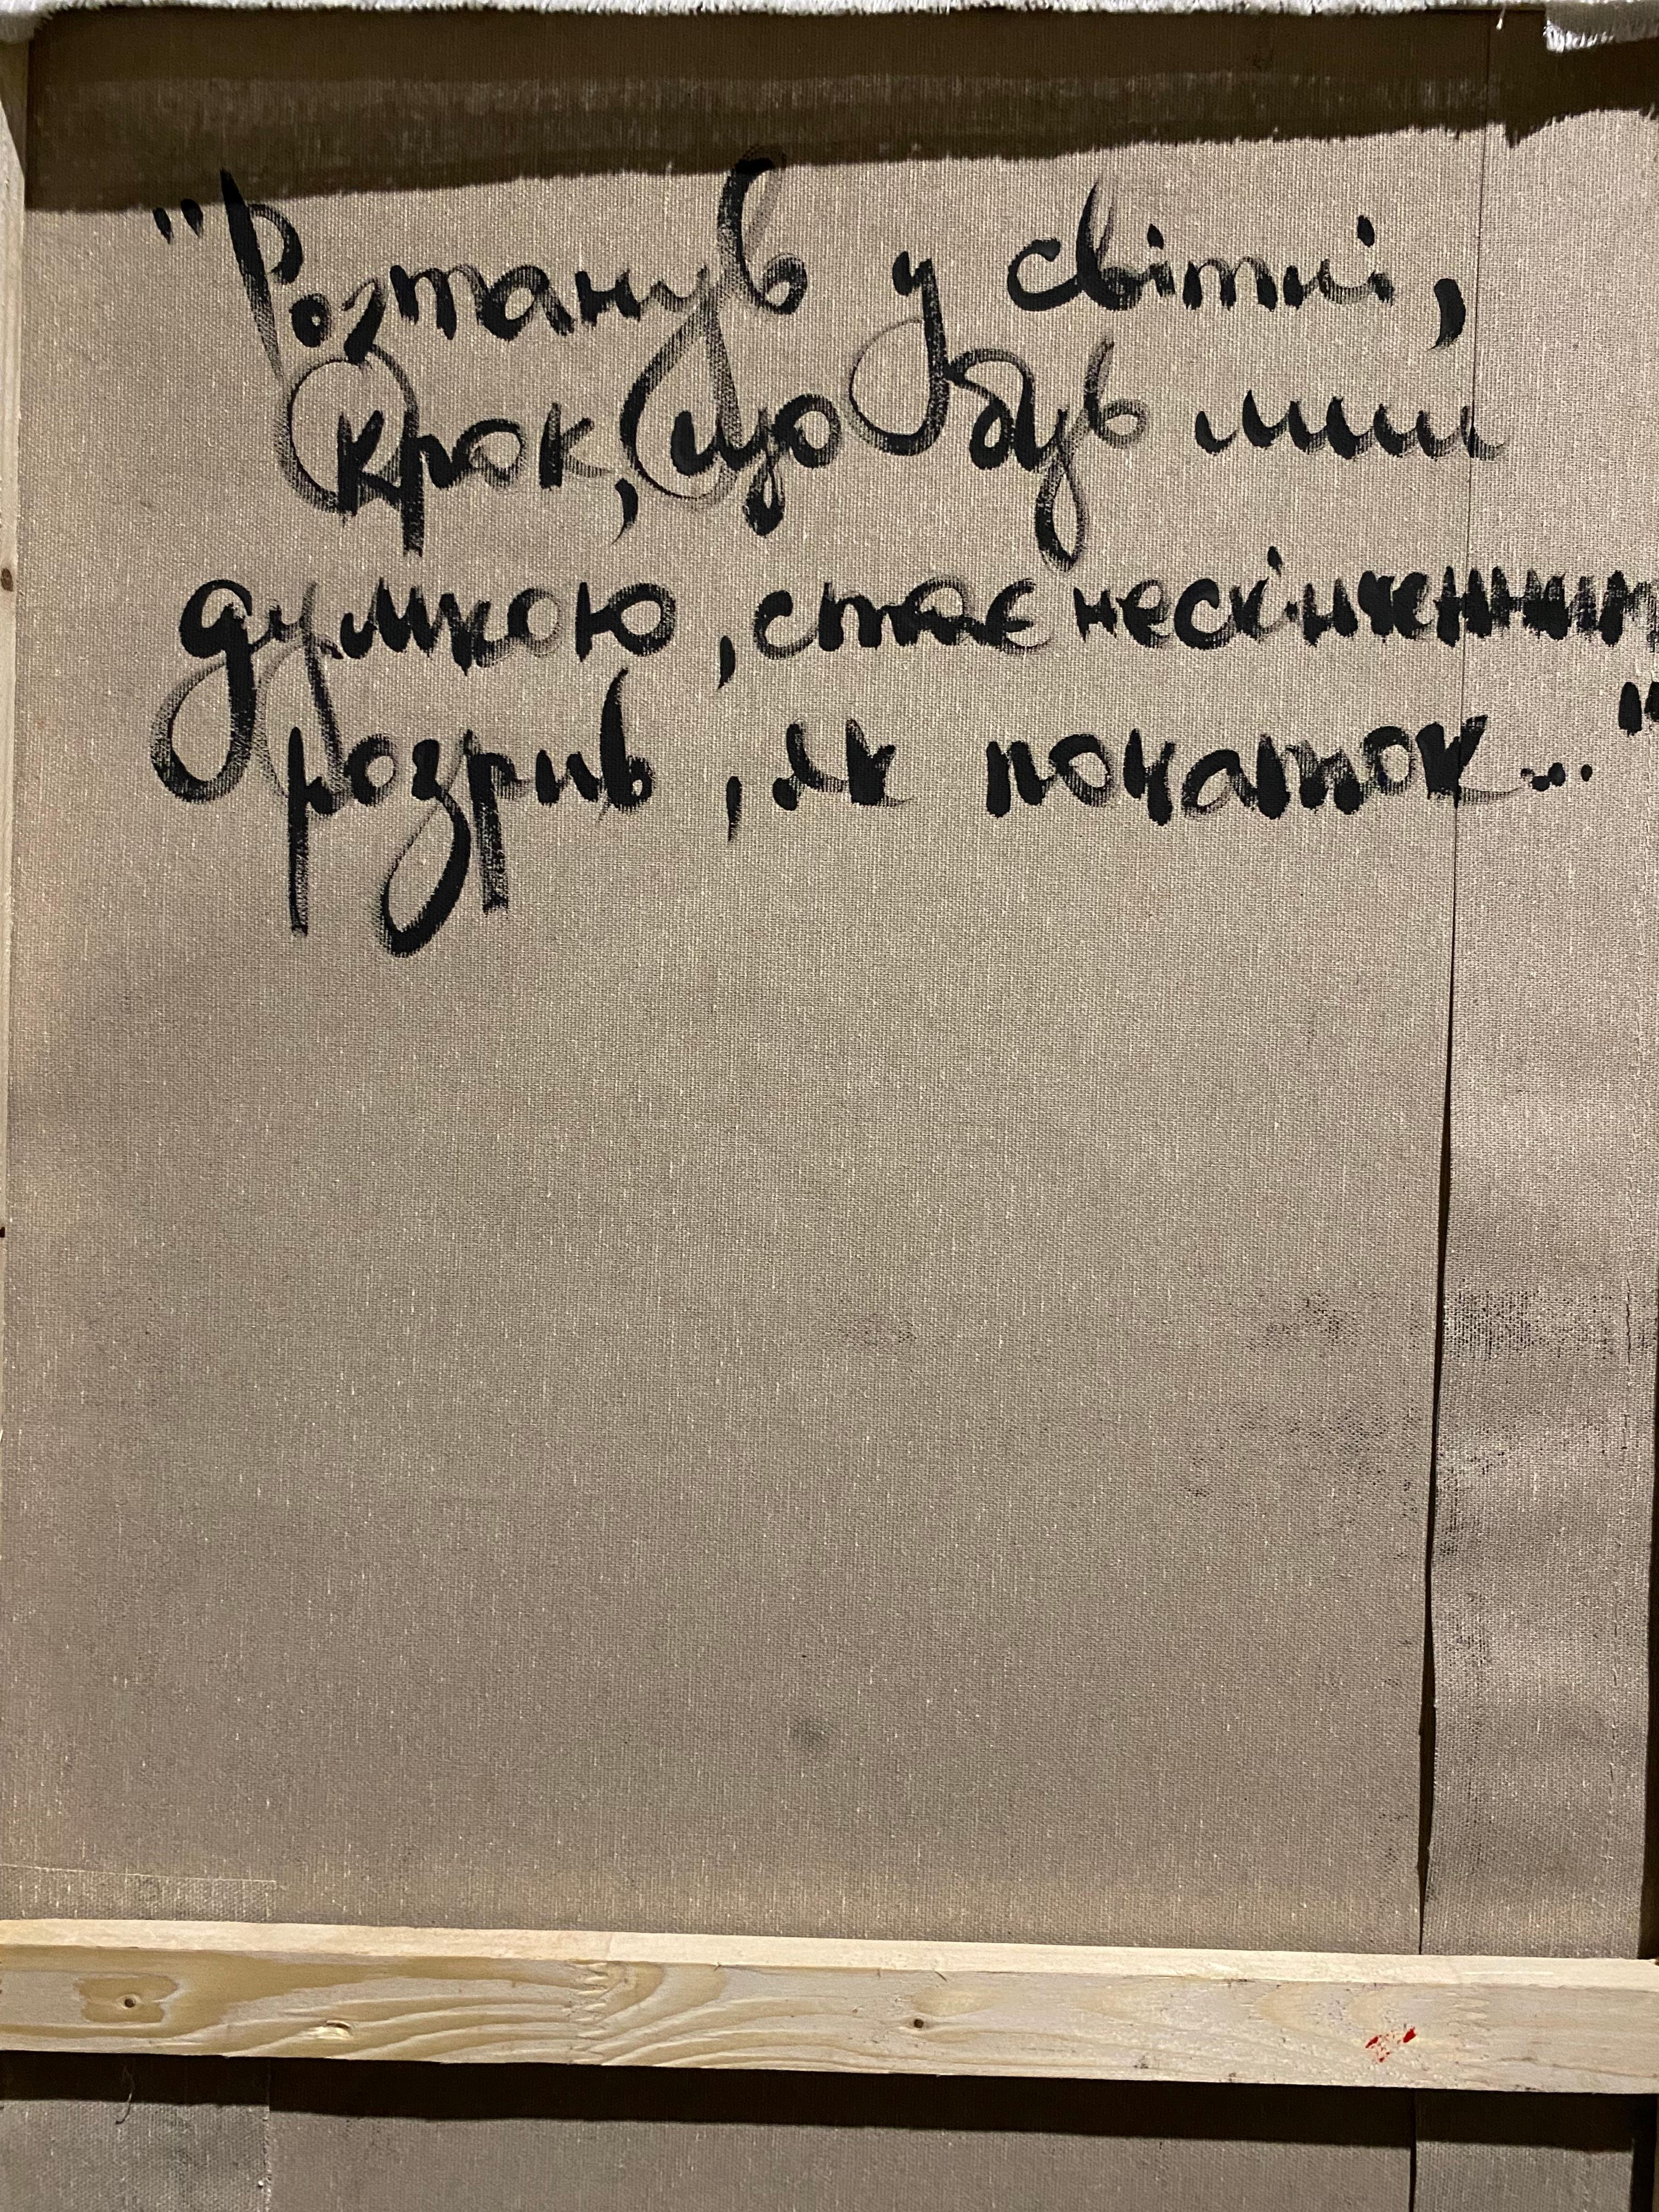 "Розтанув у світлі,
крок, що був лиш
думкою, стає нескінченним
розрив, як початок..."